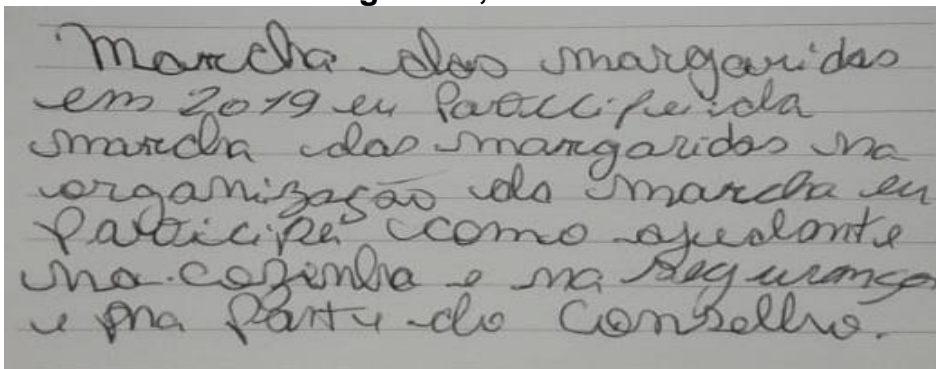 Marcha das margaridas
em 2019 eu Participei da
marcha das margaridas na
organização da marcha eu
Participe como ajudante
na cozinha e na segurança
e na parte do Conselho.